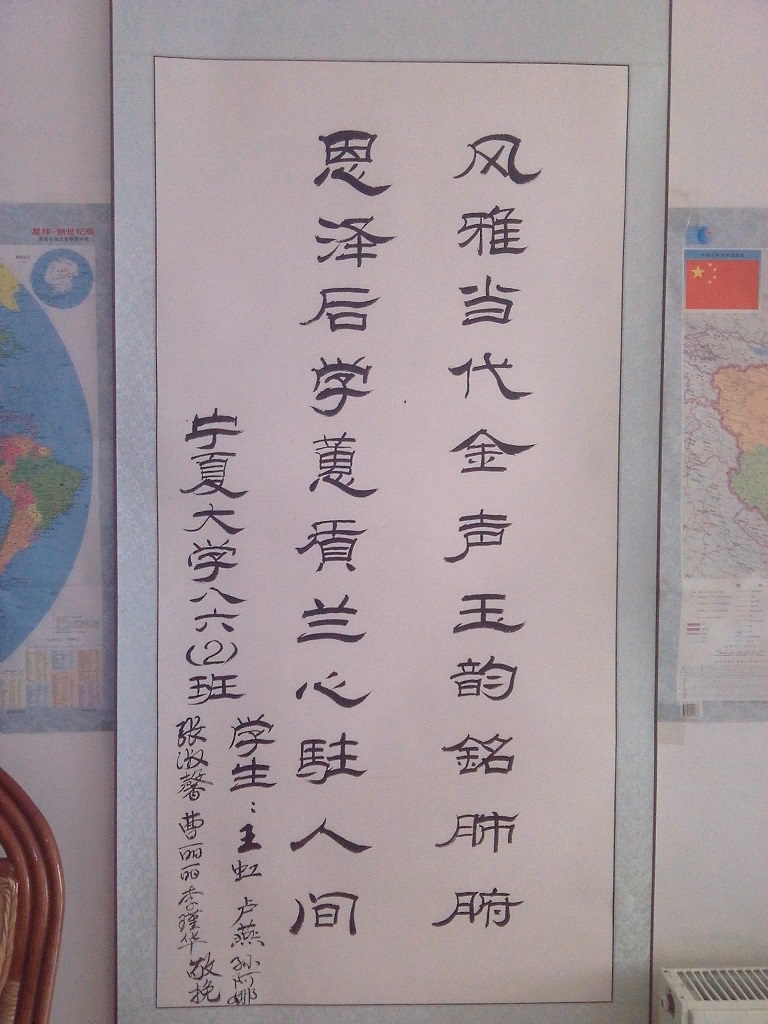 风雅当代金声玉韵铭肺腑
恩泽后学蕙质兰心駐人间
宁夏大学八六(2)班
学生：王虹 卢燕 孙阿娜
张淑馨 曹丽丽 李瑾华 敬挽
星球·新世纪版